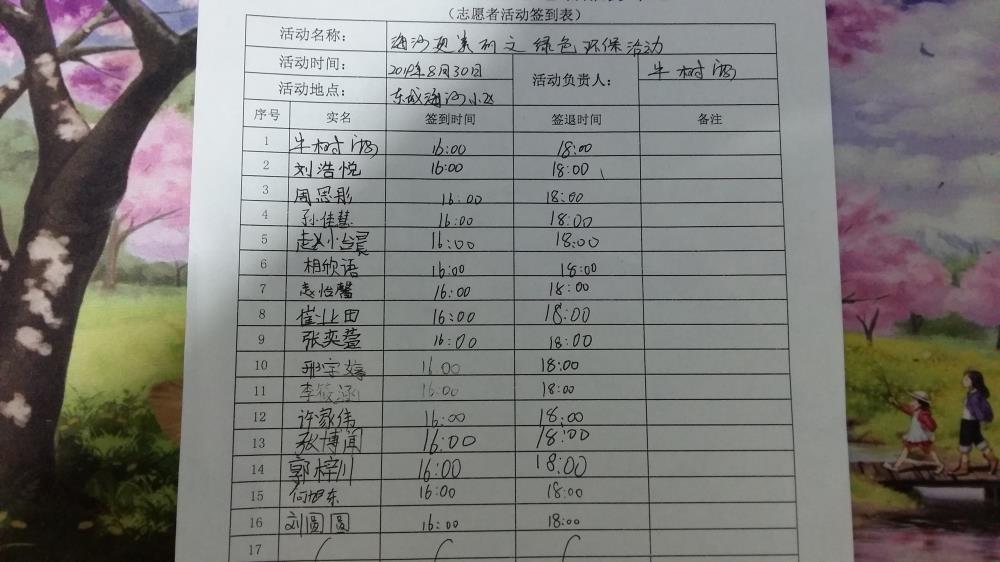 （志愿者活动签到表）
活动名称： 海沙更美丽之绿色环保活动
活动时间： 2019年8月30日 活动负责人： 牛树海
活动地点： 东城海河小区
序号 实名 签到时间 签退时间 备注
1 牛树海 16:00 18:00
2 刘浩悦 16:00 18:00
3 周思彤 16:00 18:00
4 孙佳慧 16:00 18:00
5 赵小晨 16:00 18:00
6 相欣语 16:00 18:00
7 赵怡馨 16:00 18:00
8 16:00 18:00
9 张奕萱 16:00 18:00
10 邢宇婷 16:00 18:00
11 李筱涵 16:00 18:00
12 许家伟 16:00 18:00
13 张博闻 16:00 18:00
14 郭梓川 16:00 18:00
15 何旭东 16:00 18:00
16 刘圆圆 16:00 18:00
17